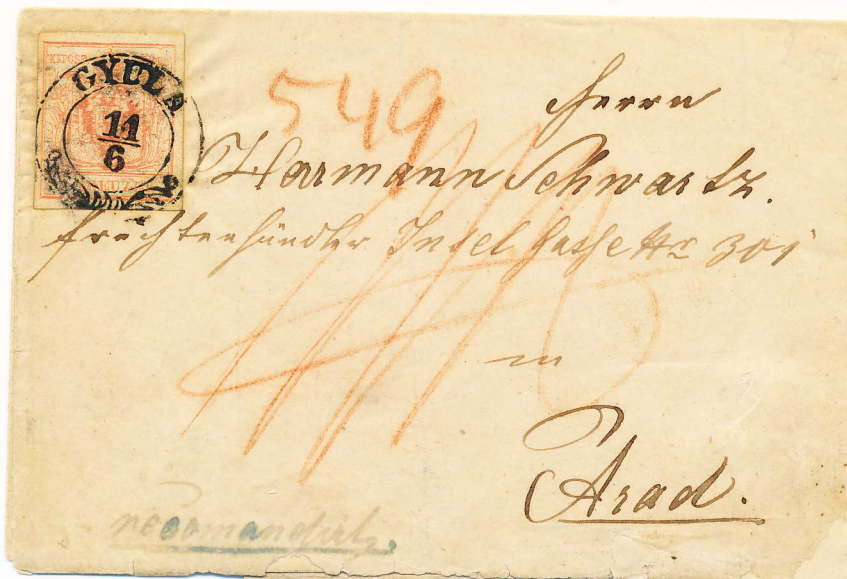 GYULA
11
6
549
Herrn
Harmann Schwartz.
fruchtenhändler Insel Gasse Nr 301
in
Arad.
recomandirt.